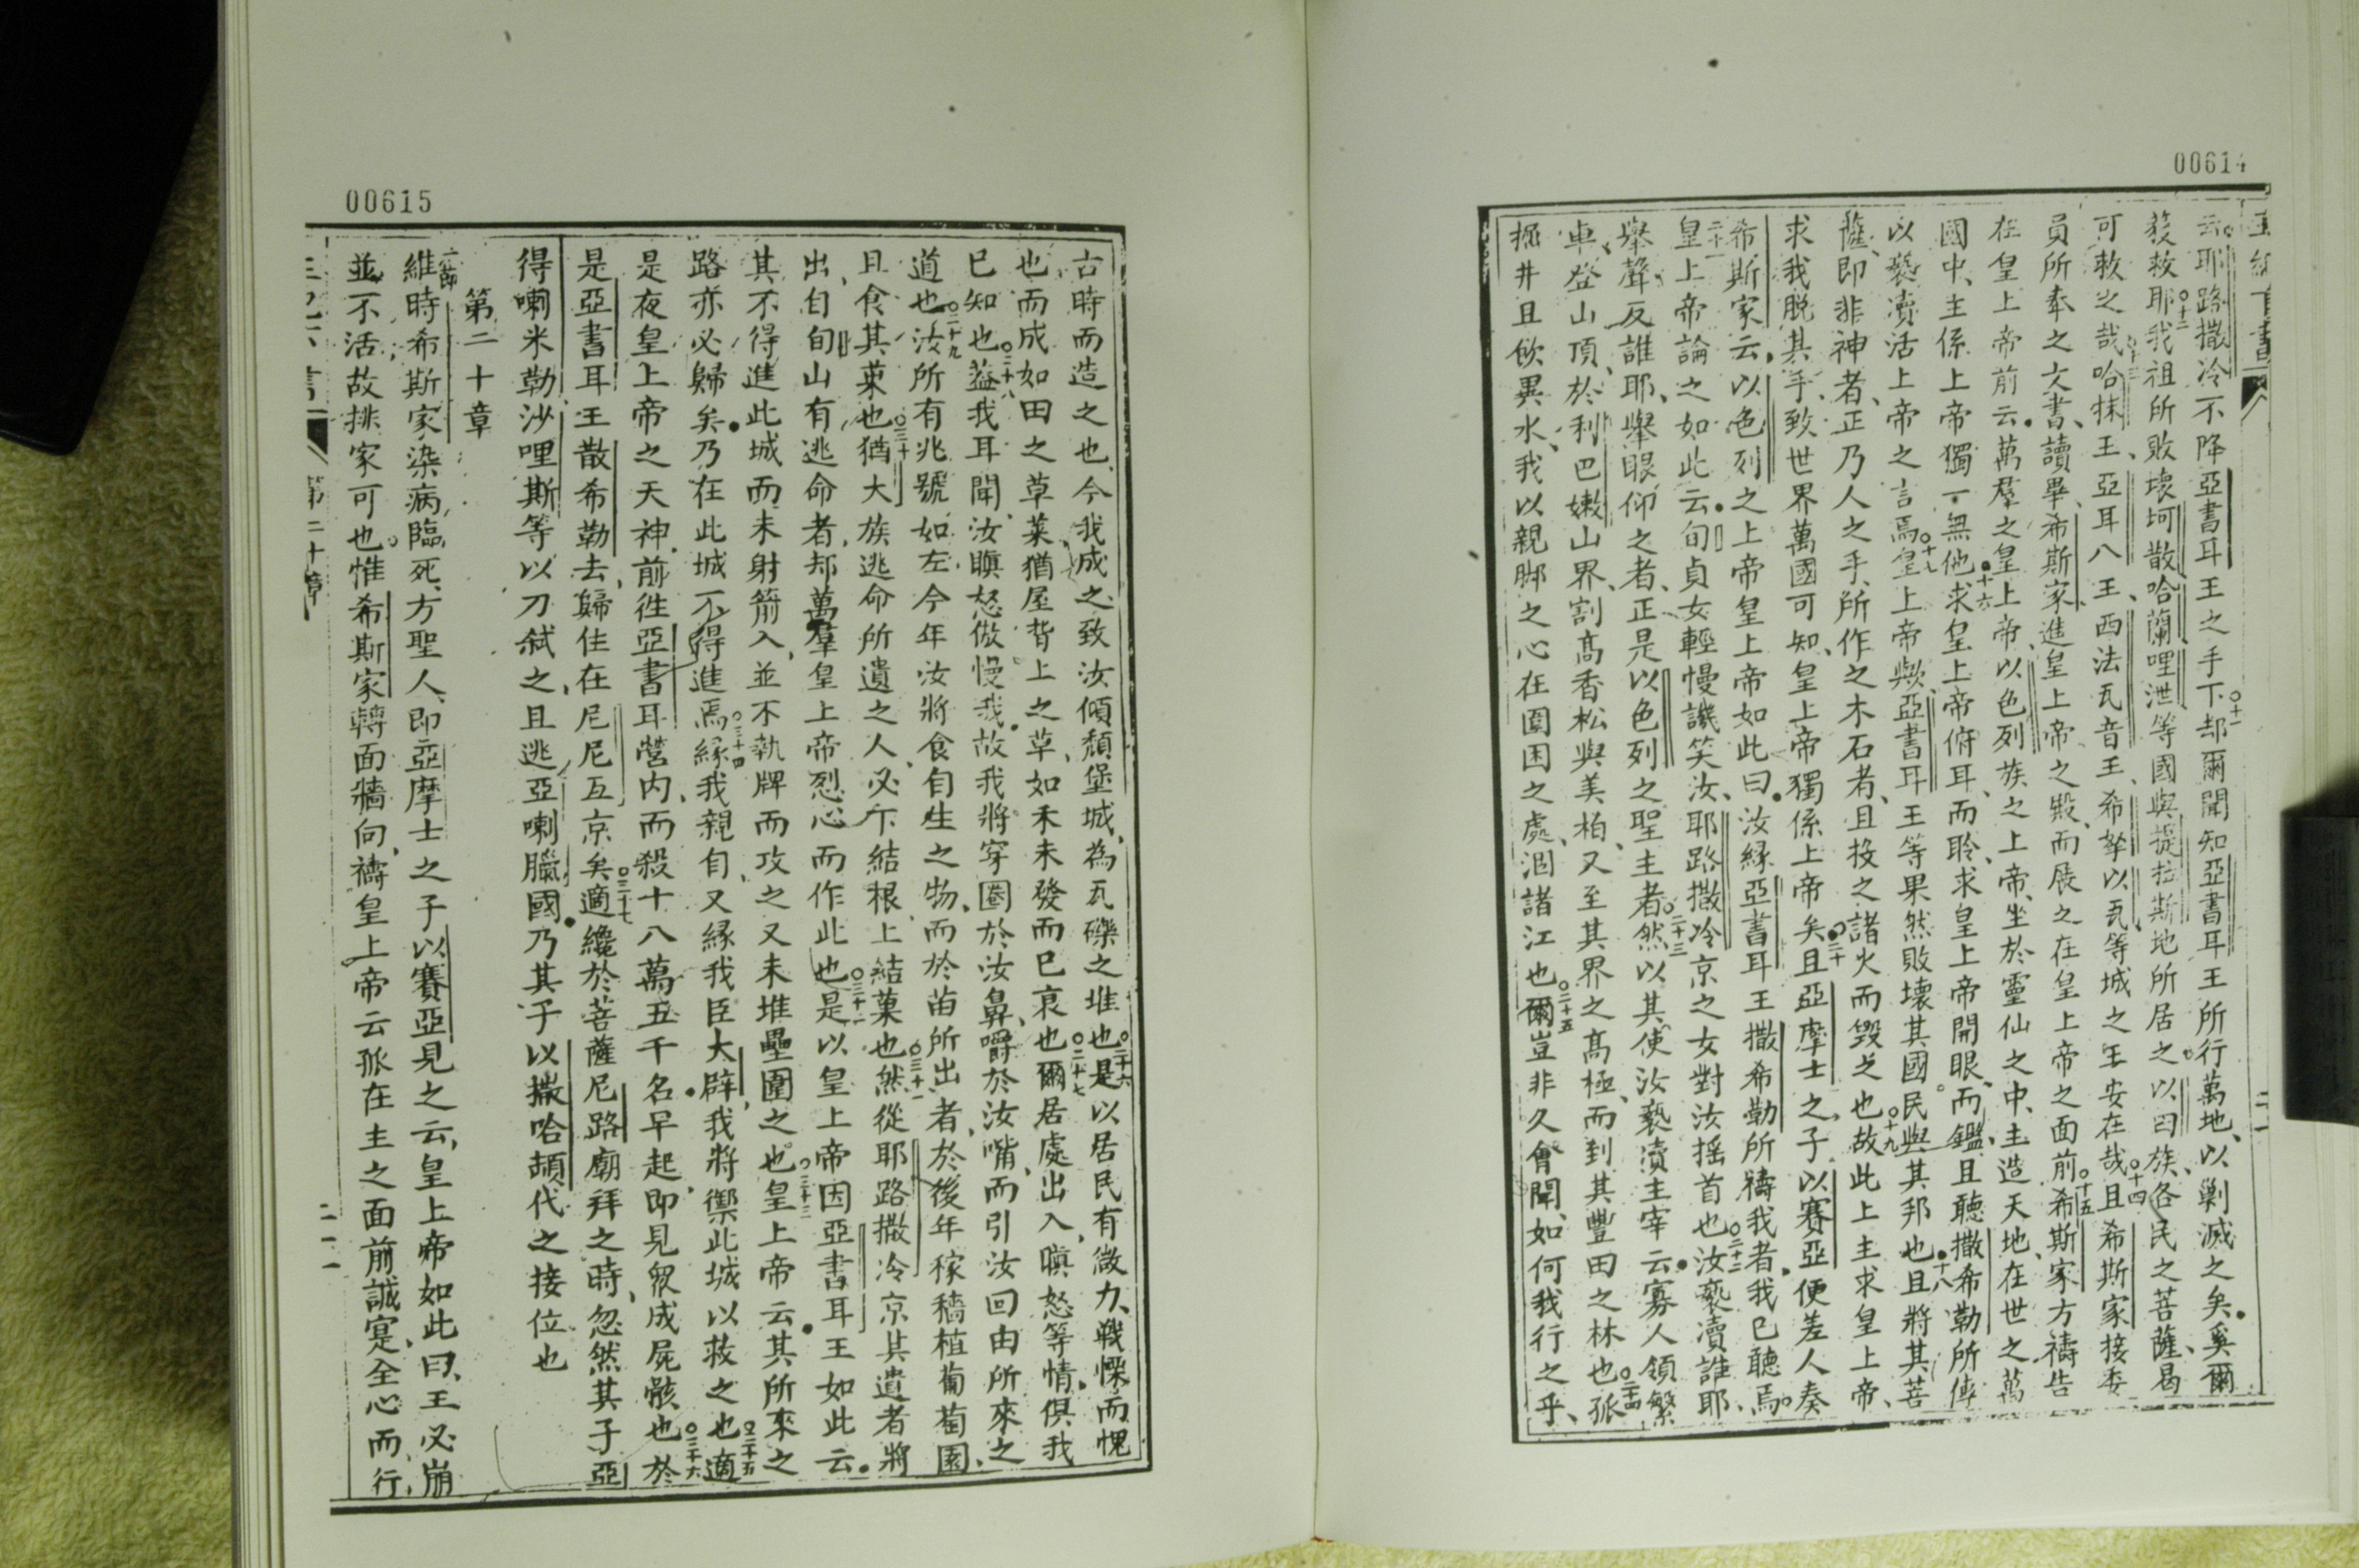 00614
云耶路撒冷不降亞書耳王之手下却爾聞知亞書耳王所行萬地以剿滅之矣奚爾
獲救耶我祖所敗壞坷散哈蘭哩泄等國與提拉斯地所居之以曰族各民之菩薩曷
可救之哉哈抹王亞耳八王西法瓦音王希拏以瓦等城之王安在哉且希斯家接委
員所奉之文書讀畢希斯家進皇上帝之殿而展之在皇上帝之面前希斯家方禱告
在皇上帝前云萬羣之皇上帝以色列族之上帝坐於靈仙之中主造天地在世之萬
國中主係上帝獨一無他求皇上帝俯耳而聆求皇上帝開眼而鑑且聽撒希勒所傳
以褻瀆活上帝之言焉皇上帝歟亞書耳王等果然敗壞其國民與其邦也且將其菩
薩即非神者正乃人之手所作之木石者且投之諸火而毀之也故此上主求皇上帝
求我脫其手致世界萬國可知皇上帝獨係上帝矣且亞摩士之子以賽亞便差人奏
希斯家云以色列之上帝皇上帝如此曰汝緣亞書耳王撒希勒所禱我者我已聽焉
皇上帝論之如此云旬貞女輕慢譏笑汝耶路撒冷京之女對汝搖首也汝褻瀆誰耶
舉聲反誰耶舉眼仰之者正是以色列之聖主者然以其使汝褻瀆主宰云寡人領繁
車登山頂於利巴嫩山界割高香松與美柏又至其界之高極而到其豐田之林也孤
掘井且飲異水我以親脚之心在圍困之處涸諸江也爾豈非久會聞如何我行之乎
00615
古時而造之也今我成之致汝傾頹堡城為瓦礫之堆也是以居民有微力戰慄而愧
也而成如田之草菜猶屋背上之草如禾未發而已哀也爾居處出入瞋怒等情俱我
已知也蓋我耳聞汝瞋怒傲慢我故我將穿圈於汝鼻嚼於汝嘴而引汝回由所來之
道也汝所有兆號如左今年汝將食自生之物而於苗所出者於後年稼穡植葡萄園
且食其菓也猶大族逃命所遺之人必下結根上結菓也然從耶路撒冷京其遺者將
出自旬山有逃命者却萬羣皇上帝烈心而作此也是以皇上帝因亞書耳王如此云
其不得進此城而未射箭入並不執牌而攻之又未堆壘圍之也皇上帝云其所來之
路亦必歸矣乃在此城不得進焉緣我親自又緣我臣大辟我將禦此城以救之也適
是夜皇上帝之天神前徃亞書耳營内而殺十八萬五千名早起即見衆成屍骸也於
是亞書耳王散希勒去歸住在尼尼瓦京矣適纔於菩薩尼路廟拜之時忽然其子亞
得喇米勒沙哩斯等以刀弒之且逃亞喇臘國乃其子以撒哈頏代之接位也
第二十章
維時希斯家染病臨死方聖人即亞摩士之子以賽亞見之云皇上帝如此曰王必崩
並不活故排家可也惟希斯家轉面牆向禱皇上帝云孤在主之面前誠寔全心而行
第二十章